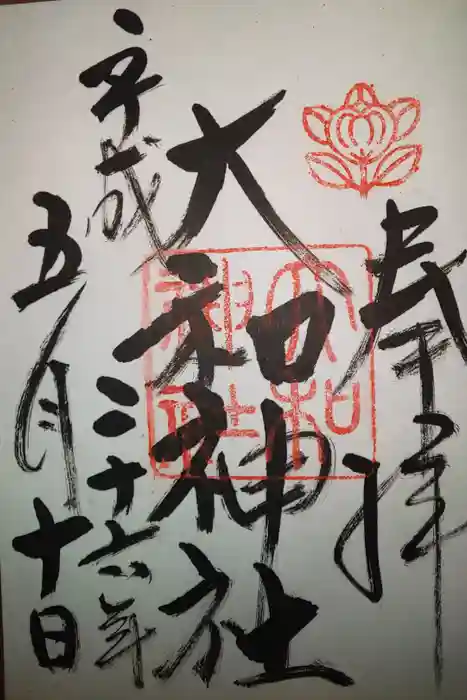 奉拝
大和神社
大和
神社
平成二十六年
五月十日